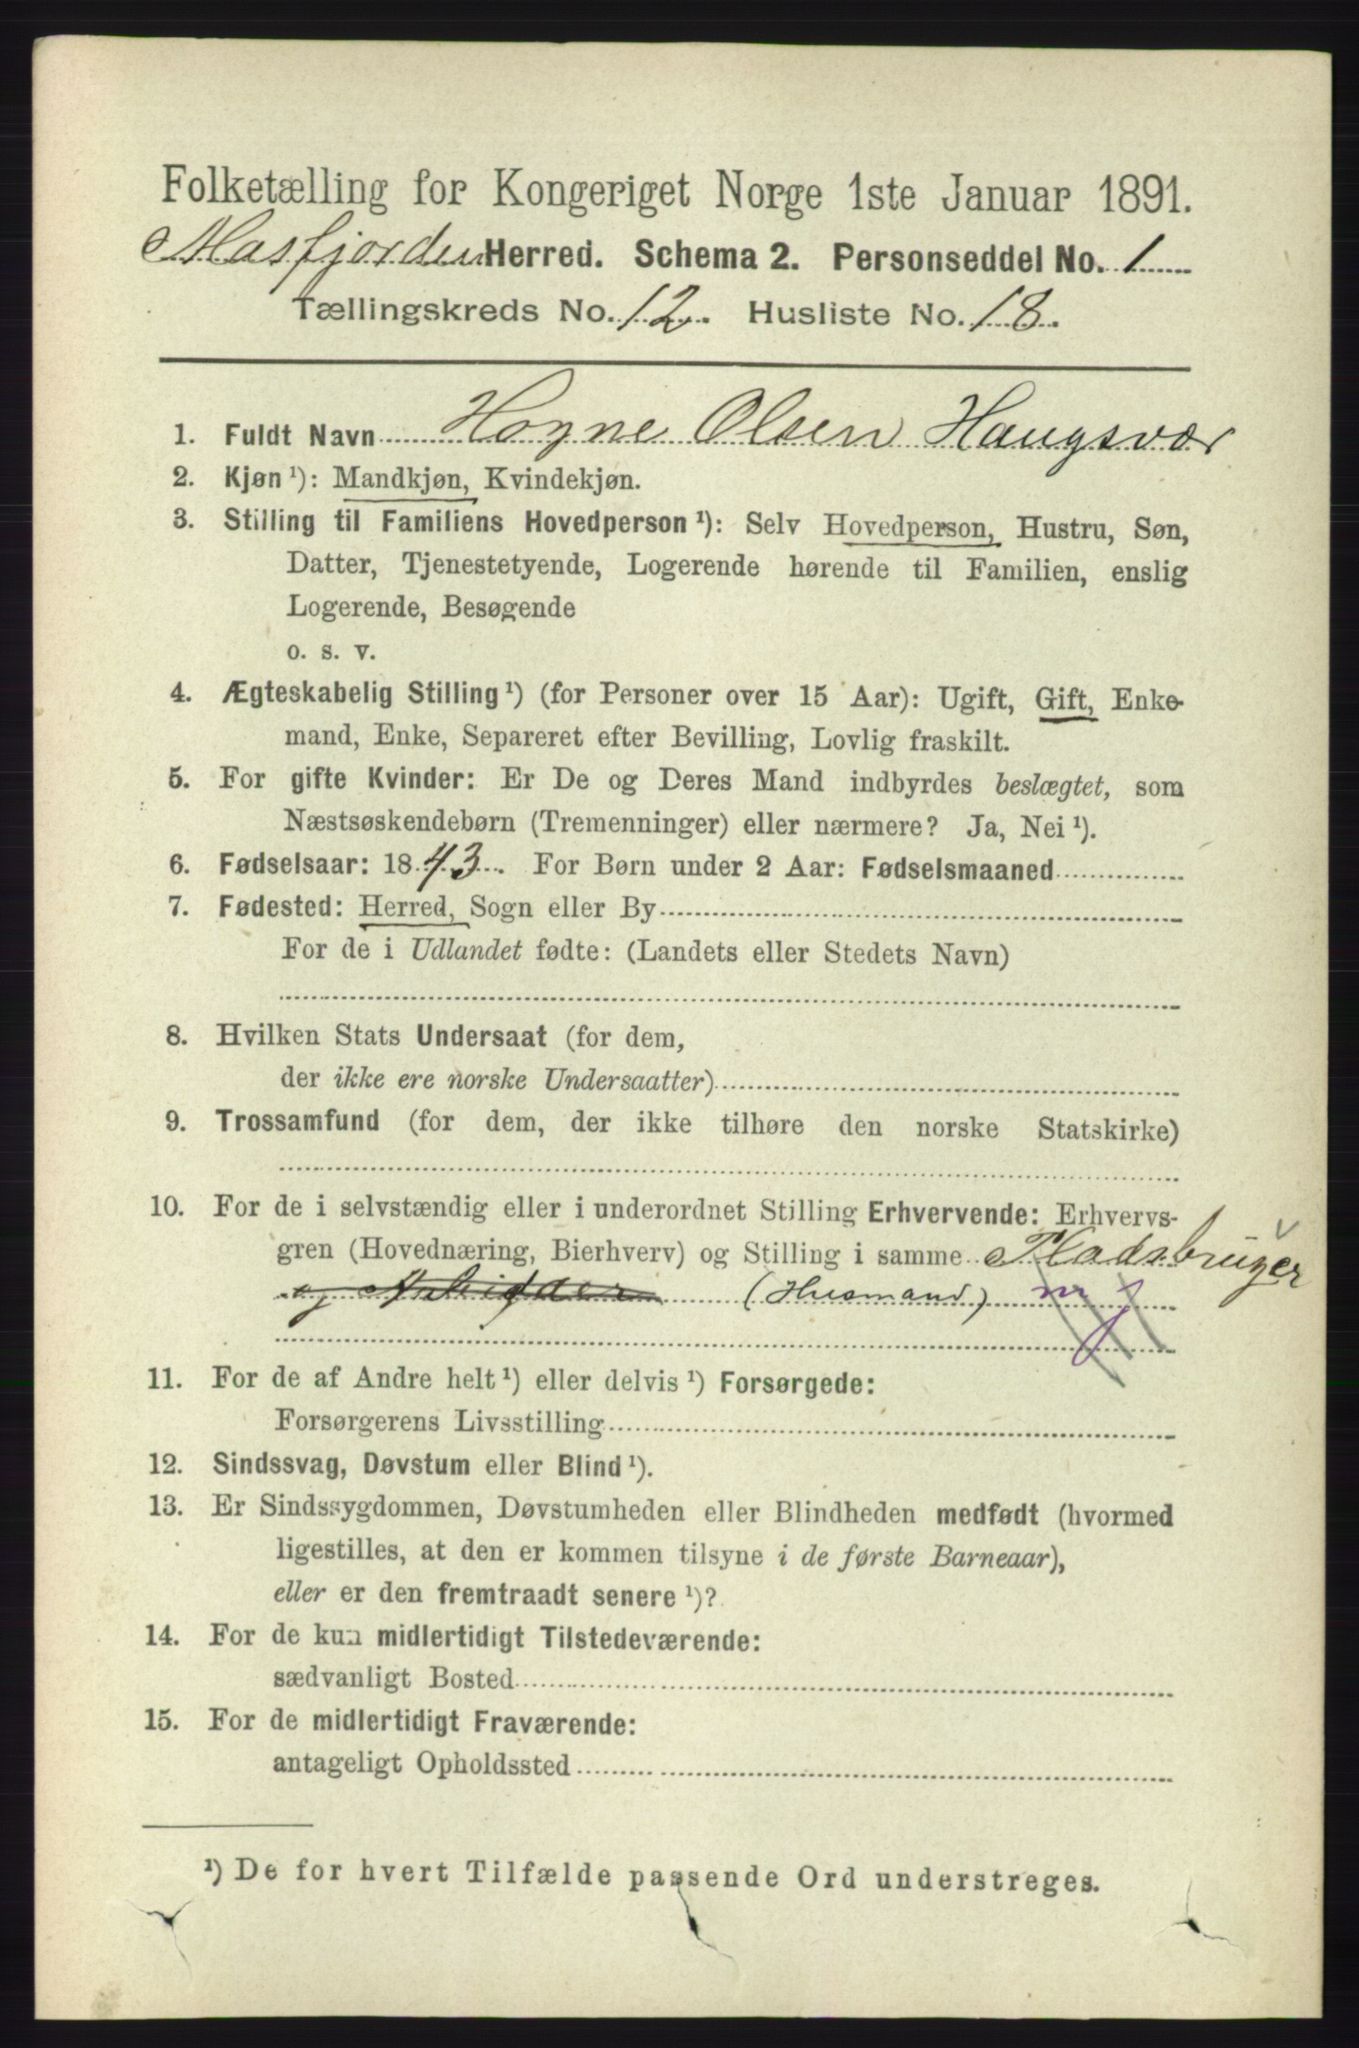 Folketælling for Kongeriget Norge 1ste Januar 1891.
Masfjorden Herred. Schema 2. Personseddel No. 1
Tællingskreds No. 12. Husliste No. 18.
1. Fuldt Navn Hogne Olsen Haugsvær
2. Kjøn ¹): Mandkjøn, Kvindekjøn.
3. Stilling til Familiens Hovedperson ¹): Selv Hovedperson, Hustru, Søn,
Datter, Tjenestetyende, Logerende hørende til Familien, enslig
Logerende, Besøgende
o. s. v.
4. Ægteskabelig Stilling ¹) (for Personer over 15 Aar): Ugift, Gift, Enke-
mand, Enke, Separeret efter Bevilling, Lovlig fraskilt.
5. For gifte Kvinder: Er De og Deres Mand indbyrdes beslægtet, som
Næstsøskendebørn (Tremenninger) eller nærmere? Ja, Nei ¹).
6. Fødselsaar: 1843. For Børn under 2 Aar: Fødselsmaaned
7. Fødested: Herred, Sogn eller By
For de i Udlandet fødte: (Landets eller Stedets Navn)
8. Hvilken Stats Undersaat (for dem,
der ikke ere norske Undersaatter)
9. Trossamfund (for dem, der ikke tilhøre den norske Statskirke)
10. For de i selvstændig eller i underordnet Stilling Erhvervende: Erhvervs-
gren (Hovednæring, Bierhverv) og Stilling i samme Pladsbruger
og Arbeider (Husmand) mj
11. For de af Andre helt ¹) eller delvis ¹) Forsørgede:
Forsørgerens Livsstilling
12. Sindssvag, Døvstum eller Blind ¹).
13. Er Sindssygdommen, Døvstumheden eller Blindheden medfødt (hvormed
ligestilles, at den er kommen tilsyne i de første Barneaar),
eller er den fremtraadt senere ¹)?
14. For de kun midlertidigt Tilstedeværende:
sædvanligt Bosted
15. For de midlertidigt Fraværende:
antageligt Opholdssted
¹) De for hvert Tilfælde passende Ord understreges.